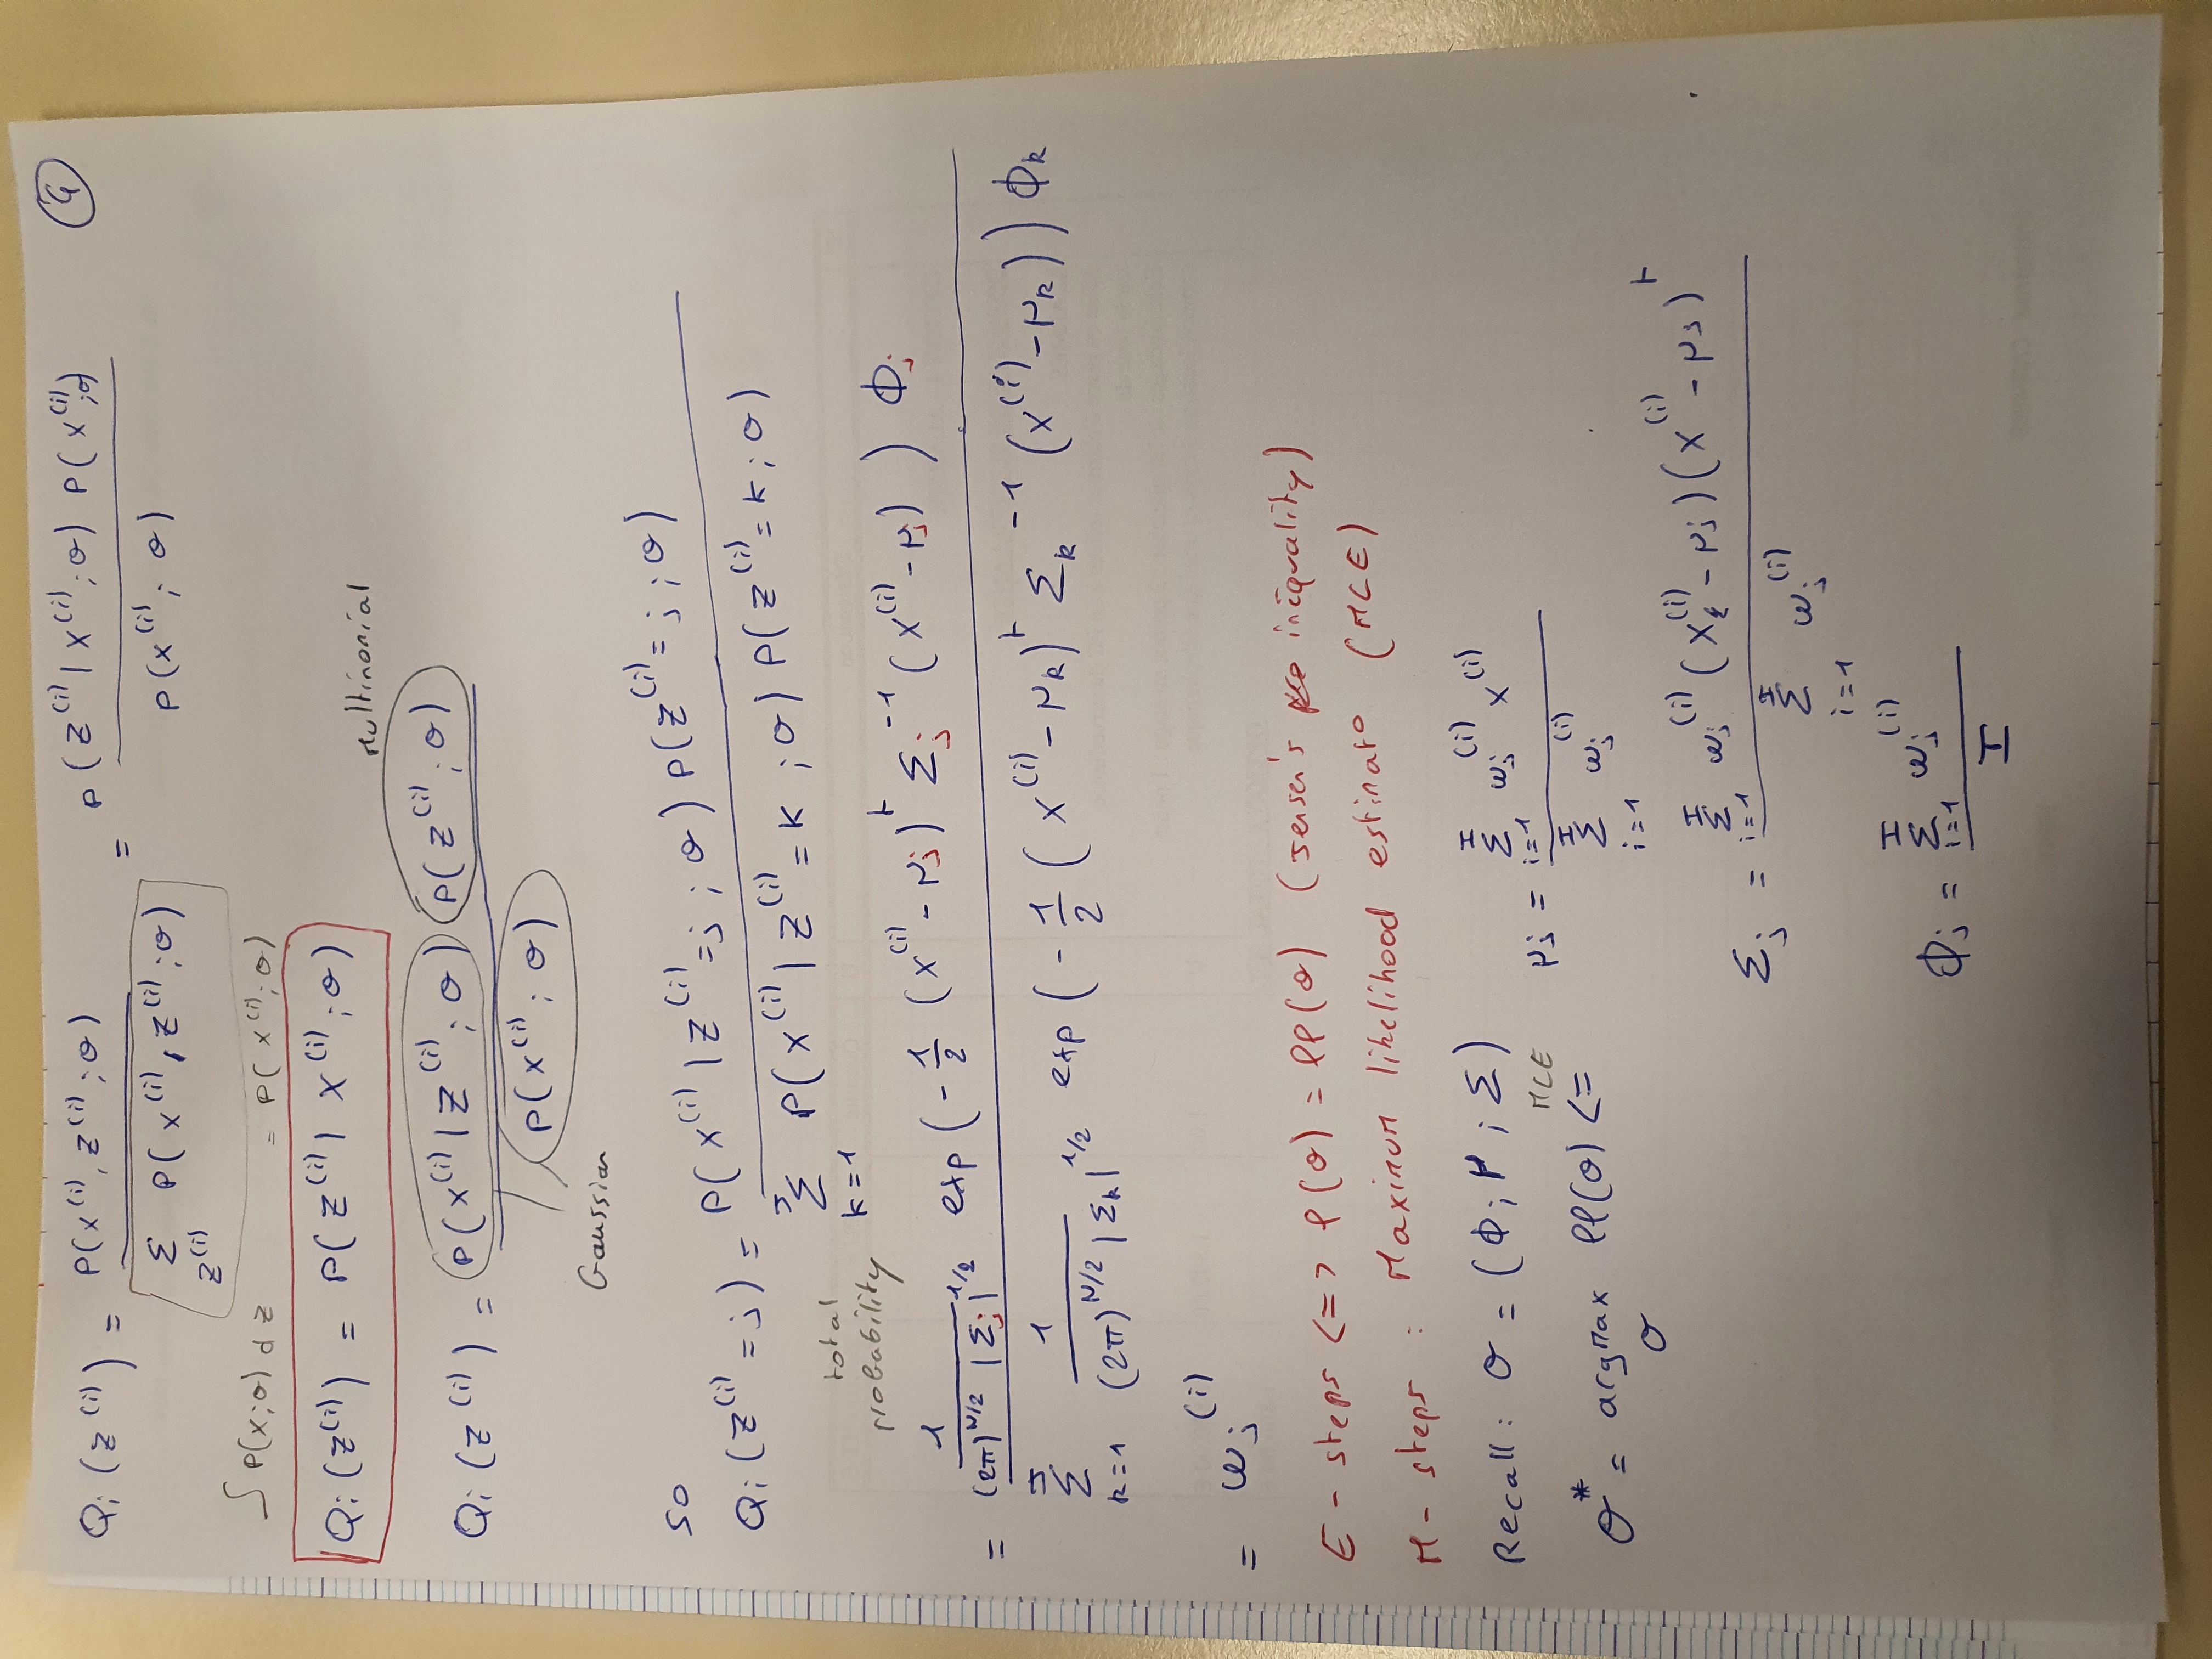 ④
Qi (z⁽ⁱ⁾) = P(x⁽ⁱ⁾, z⁽ⁱ⁾; θ) / Σ_{z⁽ⁱ⁾} P(x⁽ⁱ⁾, z⁽ⁱ⁾; θ) = P(z⁽ⁱ⁾ | x⁽ⁱ⁾; θ) P(x⁽ⁱ⁾; θ) / P(x⁽ⁱ⁾; θ)
∫ P(x; θ) dz = P(x⁽ⁱ⁾; θ)
Qi (z⁽ⁱ⁾) = P(z⁽ⁱ⁾ | x⁽ⁱ⁾; θ)
Multinomial
Qi (z⁽ⁱ⁾) = P(x⁽ⁱ⁾ | z⁽ⁱ⁾; θ) P(z⁽ⁱ⁾; θ) / P(x⁽ⁱ⁾; θ)
Gaussian
so
Qi (z⁽ⁱ⁾ = j) = P(x⁽ⁱ⁾ | z⁽ⁱ⁾ = j; θ) P(z⁽ⁱ⁾ = j; θ) / Σ_{k=1}^{J} P(x⁽ⁱ⁾ | z⁽ⁱ⁾ = k; θ) P(z⁽ⁱ⁾ = k; θ)
total
probability
= 1/((2π)^{N/2} |Σj|^{1/2}) exp(-1/2 (x⁽ⁱ⁾ - μj)ᵗ Σj⁻¹ (x⁽ⁱ⁾ - μj)) ϕj / Σ_{k=1}^{J} 1/((2π)^{N/2} |Σk|^{1/2}) exp(-1/2 (x⁽ⁱ⁾ - μk)ᵗ Σk⁻¹ (x⁽ⁱ⁾ - μk)) ϕk
= ωj⁽ⁱ⁾
E - steps <=> ℓ(θ) = ℓℓ(θ) (Jensen's inequality)
M - steps : Maximum likelihood estimat° (MLE)
Recall : θ = (ϕ; μ; Σ)
MLE
θ* = argmax_θ ℓℓ(θ) <=
μj = Σ_{i=1}^{M} ωj⁽ⁱ⁾ x⁽ⁱ⁾ / Σ_{i=1}^{M} ωj⁽ⁱ⁾
Σj = Σ_{i=1}^{M} ωj⁽ⁱ⁾ (x⁽ⁱ⁾ - μj)(x⁽ⁱ⁾ - μj)ᵗ / Σ_{i=1}^{M} ωj⁽ⁱ⁾
ϕj = Σ_{i=1}^{M} ωj⁽ⁱ⁾ / M